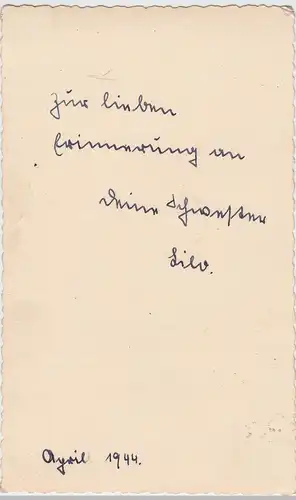 Zur lieben
Erinnerung an
deine Schwester
Lilo.
April 1944.